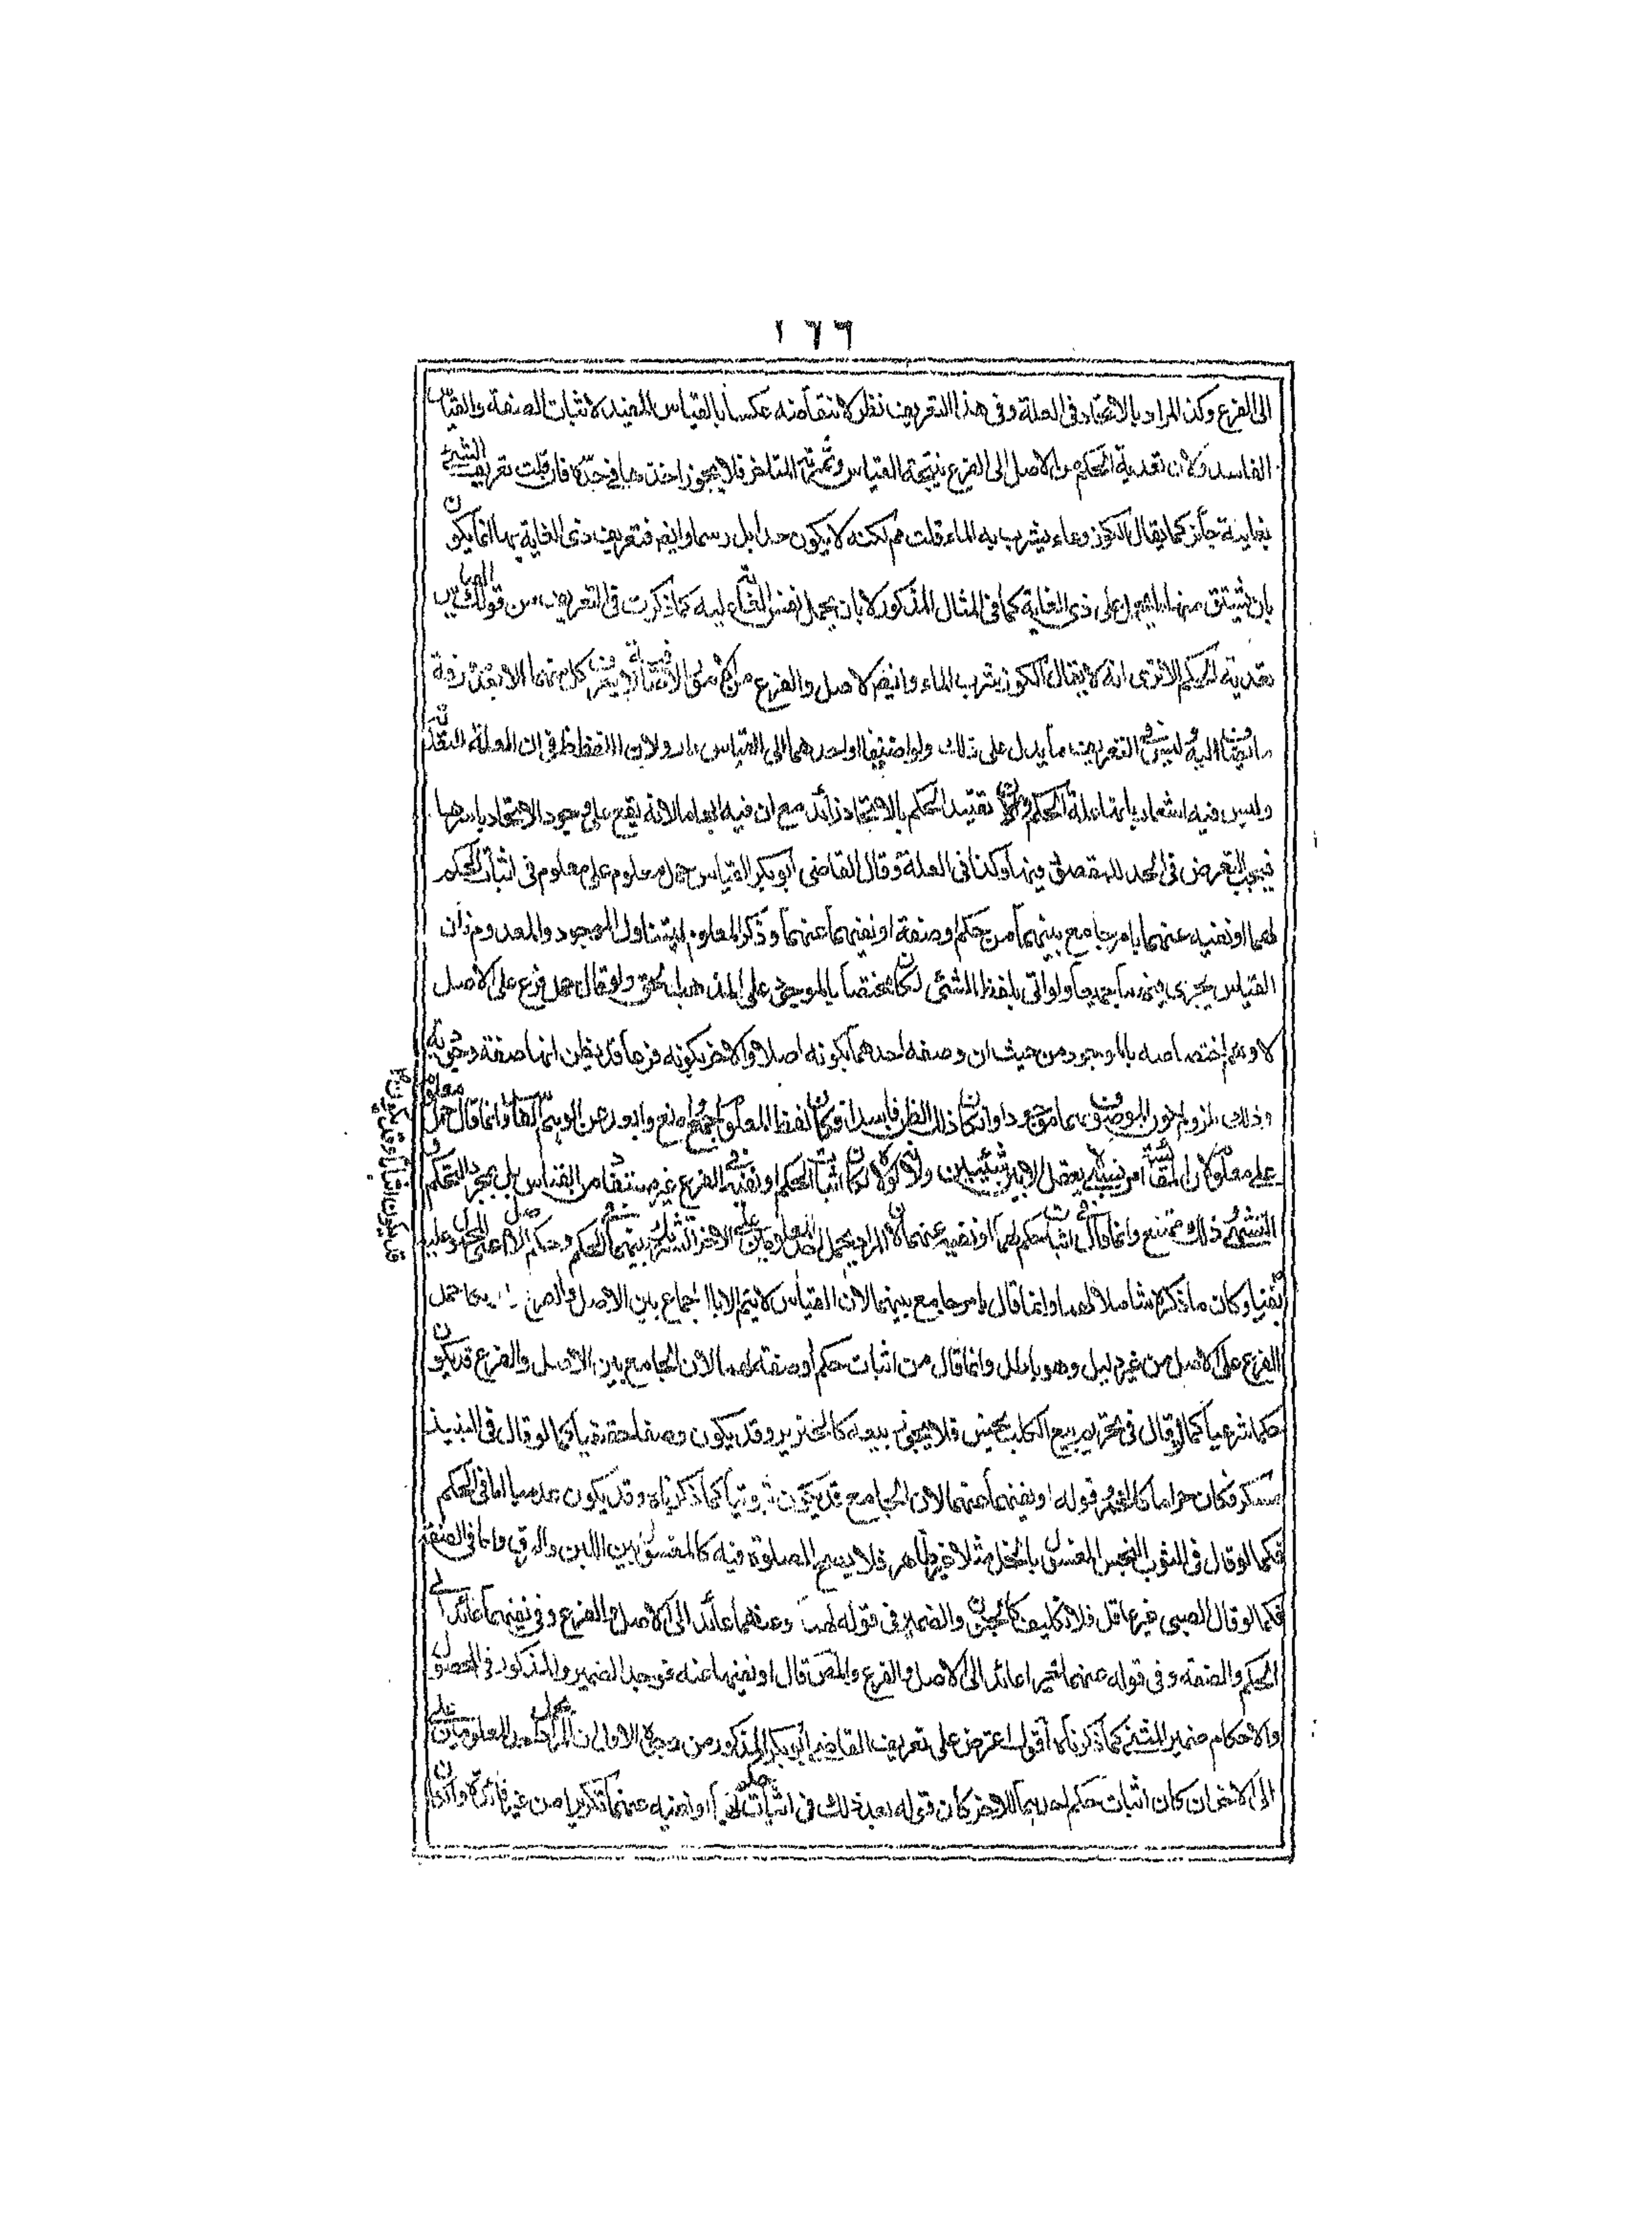 ١٦٦
الى الفرع وكذا المراد بالاتحاد فى العلة وفى هذا التعريف نظر لانتقاضه عكسا بالقياس المفيد لاثبات الصفة والقياس
الفاسد ولان تعدية الحكم من الاصل الى الفرع نتيجة القياس وثمرته المتاخر فلا يجوز اخذها فى حده فان قلت تعريف الشئ
بغايته جائز كما يقال الكوز وعاء يشرب به الماء قلت نعم لكنه لا يكون حدا بل رسما وايضا فتعريف ذى الغاية بها انما يكون
بان يشتق منها ما يحمل على ذى الغاية كما فى المثال المذكور لا بان يحمل نفس الغاية عليه كما ذكرت فى التعريف من قولك القياس
تعدية الحكم الا ترى انه لا يقال الكوز شرب الماء وايضا الاصل والفرع من الامور الاضافية لا يعرف كل منهما الا بمعرفة
ما اضيف اليه وليس فى التعريف ما يدل على ذلك ولو اضيفا او احدهما الى القياس دار ولان اللفظ فى ان العلة المتحدة
وليس فيه اشعار بانها علة الحكم وايضا تقييد الحكم بالاتحاد زائد مع ان فيه ابهاما لانه يقع على وجود الاتحاد باسرها
فيجب التعرض فى الحد للمقصود منها وكذا فى العلة وقال القاضى ابو بكر القياس حمل معلوم على معلوم فى اثبات الحكم
لهما او نفيه عنهما بامر جامع بينهما من حكم او صفة او نفيهما عنهما وذكر المعلوم ليتناول الموجود والمعدوم فان
القياس يجرى فيهما جميعا ولو اتى بلفظ الشئ لكان مختصا بالموجود على المذهب الحق ولو قال حمل فرع على الاصل
لاوهم اختصاصه بالموجود من حيث ان وصف احدهما بكونه اصلا والاخر بكونه فرعا قد يظن انها صفة وجودية
وذلك يلزم كون الموصوف بهما موجودا وان كان ذلك الظن فاسدا فكان لفظ المعلوم اجمع وامنع وابعد عن الوهم وانما قال حمل معلوم
على معلوم لان المقايسة امر نسبى لا يعقل الا بين شيئين ولانه لولاه لكان اثبات الحكم او نفيه فى الفرع غير مستفاد من القياس بل بمجرد التحكم و
التشهى وذلك ممتنع وانما قال فى اثبات حكم لهما او نفيه عنهما لان المراد بحمل احد المعلومين على الاخر التشريك بينهما فى الحكم وحكم الاصل اعنى المحمول عليه
قد يكون اثباتا وقد يكون
نفيا وكان ما ذكره شاملا لهما وانما قال بامر جامع بينهما لان القياس لا يتم الا بالجامع بين الاصل والفرع حمل
الفرع على الاصل من غير دليل وهو باطل وانما قال من اثبات حكم او صفة لهما لان الجامع بين الاصل والفرع قد يكون
حكما شرعيا كما لو قال فى تحريم بيع الكلب نجس فلا يجوز بيعه كالخنزير وقد يكون وصفا حقيقيا كما لو قال فى النبيذ
مسكر فكان حراما كالخمر قوله او نفيهما عنهما لان الجامع قد يكون ثبوتيا كما ذكرناه وقد يكون عدميا اما فى الحكم
فكما لو قال فى الثوب النجس المغسول بالخل مثلا غير طاهر فلا يصح الصلوة فيه كالمغسول بين اللبن والمرق واما فى الصفة
فكما لو قال الصبى غير عاقل فلا تكليف كالمجنون والضمير فى قوله لهما وعنهما عائد الى الاصل والفرع وفى نفيهما عائد الى
الحكم والصفة وفى قوله عنهما اخيرا عائد الى الاصل والفرع والمص قال او نفيهما عنه فوحد الضمير والمذكور فى المحصول
والاحكام ضمير المثنى كما ذكرناه اقول اعترض على تعريف القاضى ابو بكر المذكور من وجوه الاول ان المراد بحمل احد المعلومين على
الاخر ان كان اثبات حكم احدهما للاخر كان قوله بعد ذلك فى اثبات حكم لهما او نفيه عنهما تكريرا من غير فائدة وان كان